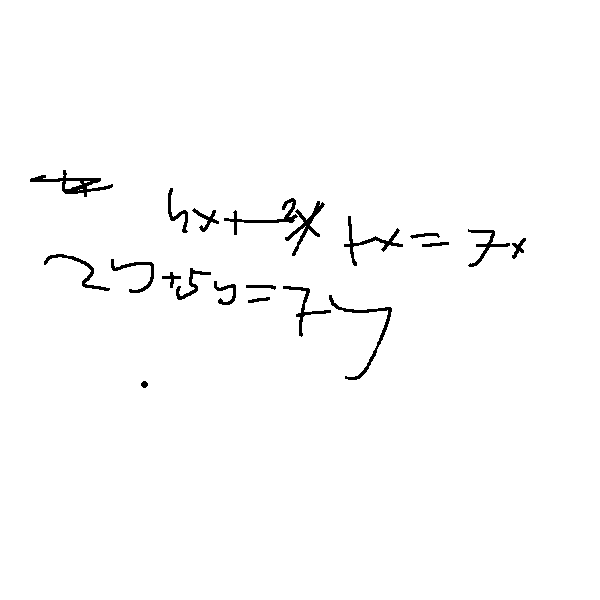 4x+2x+x=7x
2y+5y=7y